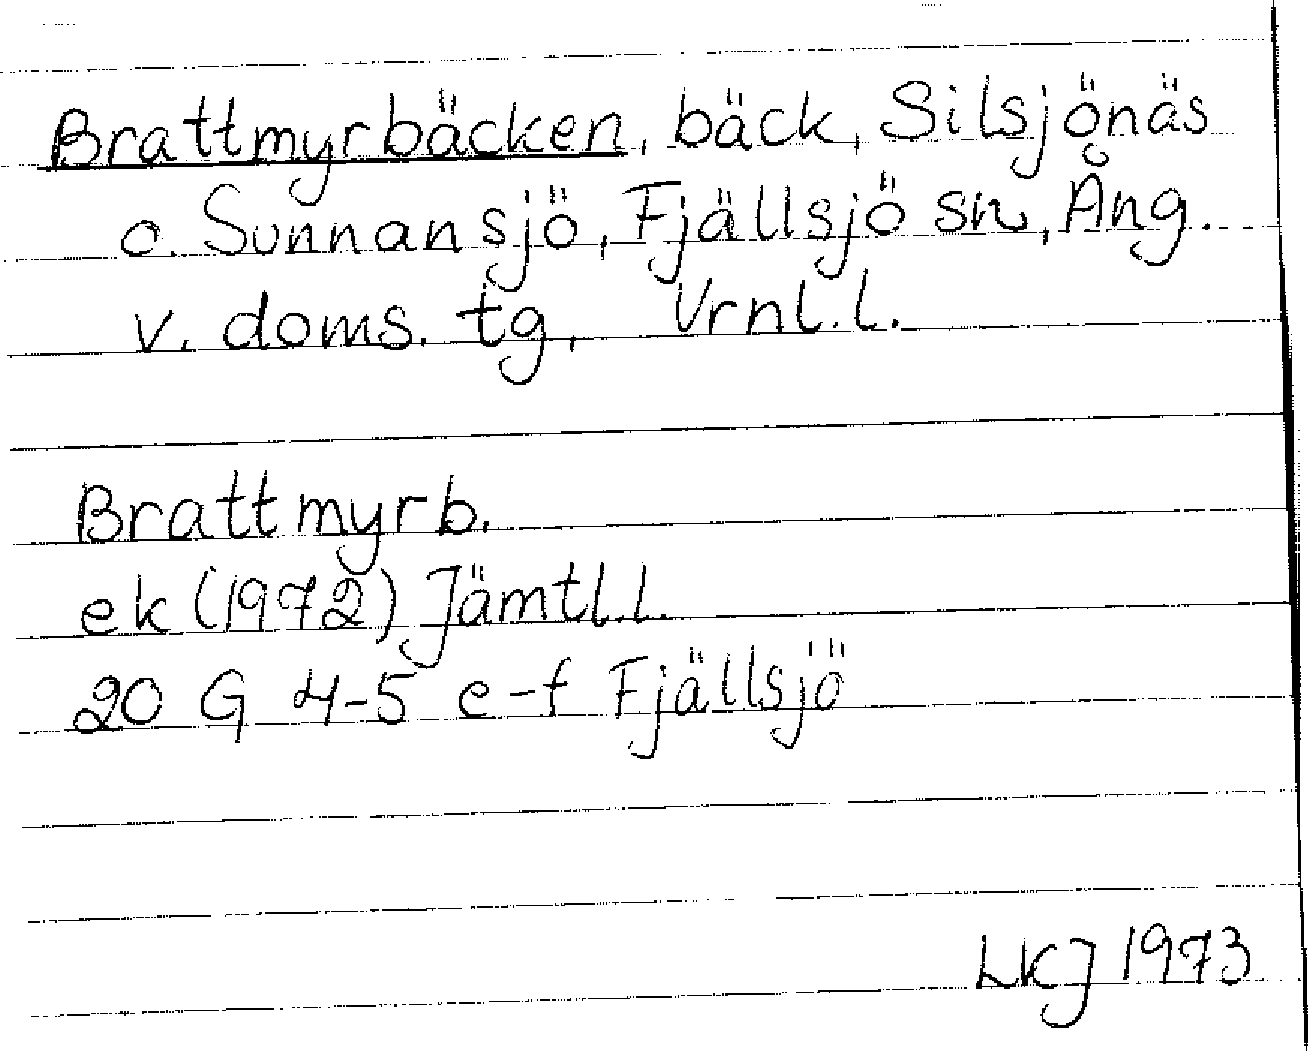 Brattmyrbäcken, bäck, Silsjönäs
o. Sunnansjö, Fjällsjö sn, Ång.
v. doms. tg, Vrnl.l.
Brattmyrb.
ek (1972) Jämtl.l.
20 G 4-5 e-f Fjällsjö
LKJ 1973